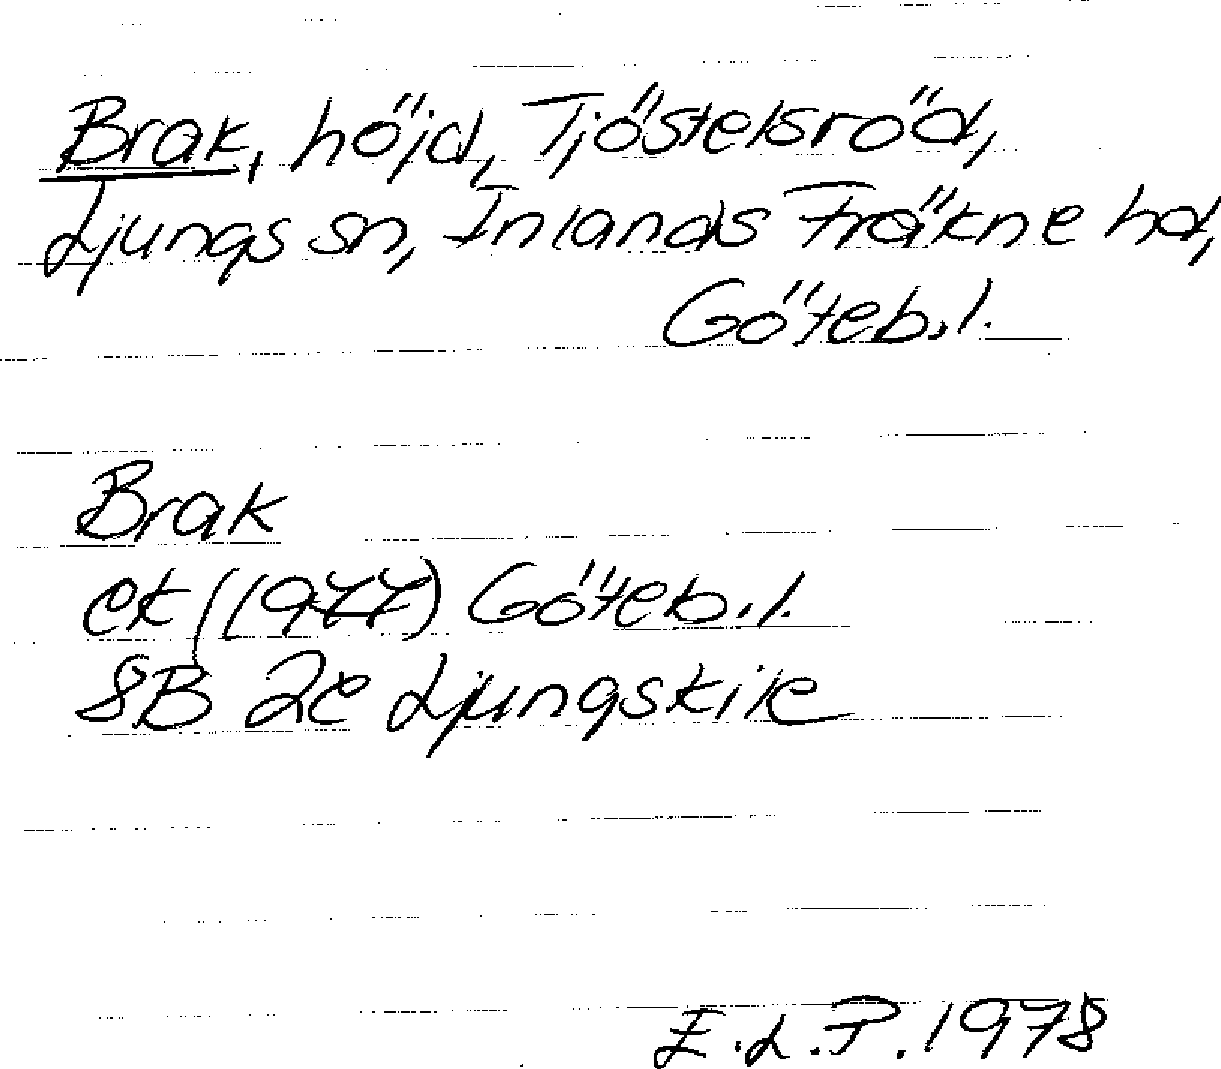 Brak, höjd, Tjöstelsröd,
Ljungs sn, Inlands Fräkne hd,
Göteb.l.
Brak
ek (1977) Göteb.l.
8B 2e Ljungskile
E.L.P. 1978